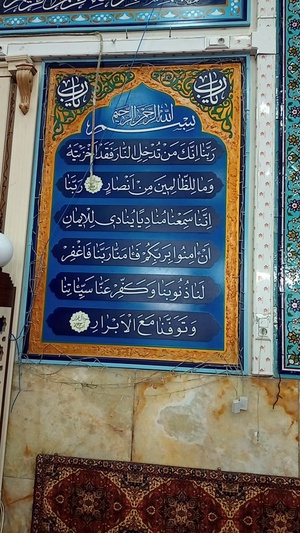 یارب
یارب
بِسْمِ اللهِ الرَّحْمٰنِ الرَّحِیمِ
رَبَّنَا اِنَّكَ مَنْ تُدْخِلِ النَّارَ فَقَدْ اَخْزَيْتَهُ
وَمَا لِلظَّالِمِينَ مِنْ اَنْصَارٍ رَبَّنَا
اِنَّنَا سَمِعْنَا مُنَادِيًا يُنَادِى لِلْاِيمَانِ
اَنْ اٰمِنُوا بِرَبِّكُمْ فَاٰمَنَّا رَبَّنَا فَاغْفِرْ
لَنَا ذُنُوبَنَا وَكَفِّرْ عَنَّا سَيِّئَاتِنَا
وَتَوَفَّنَا مَعَ الْاَبْرَارِ